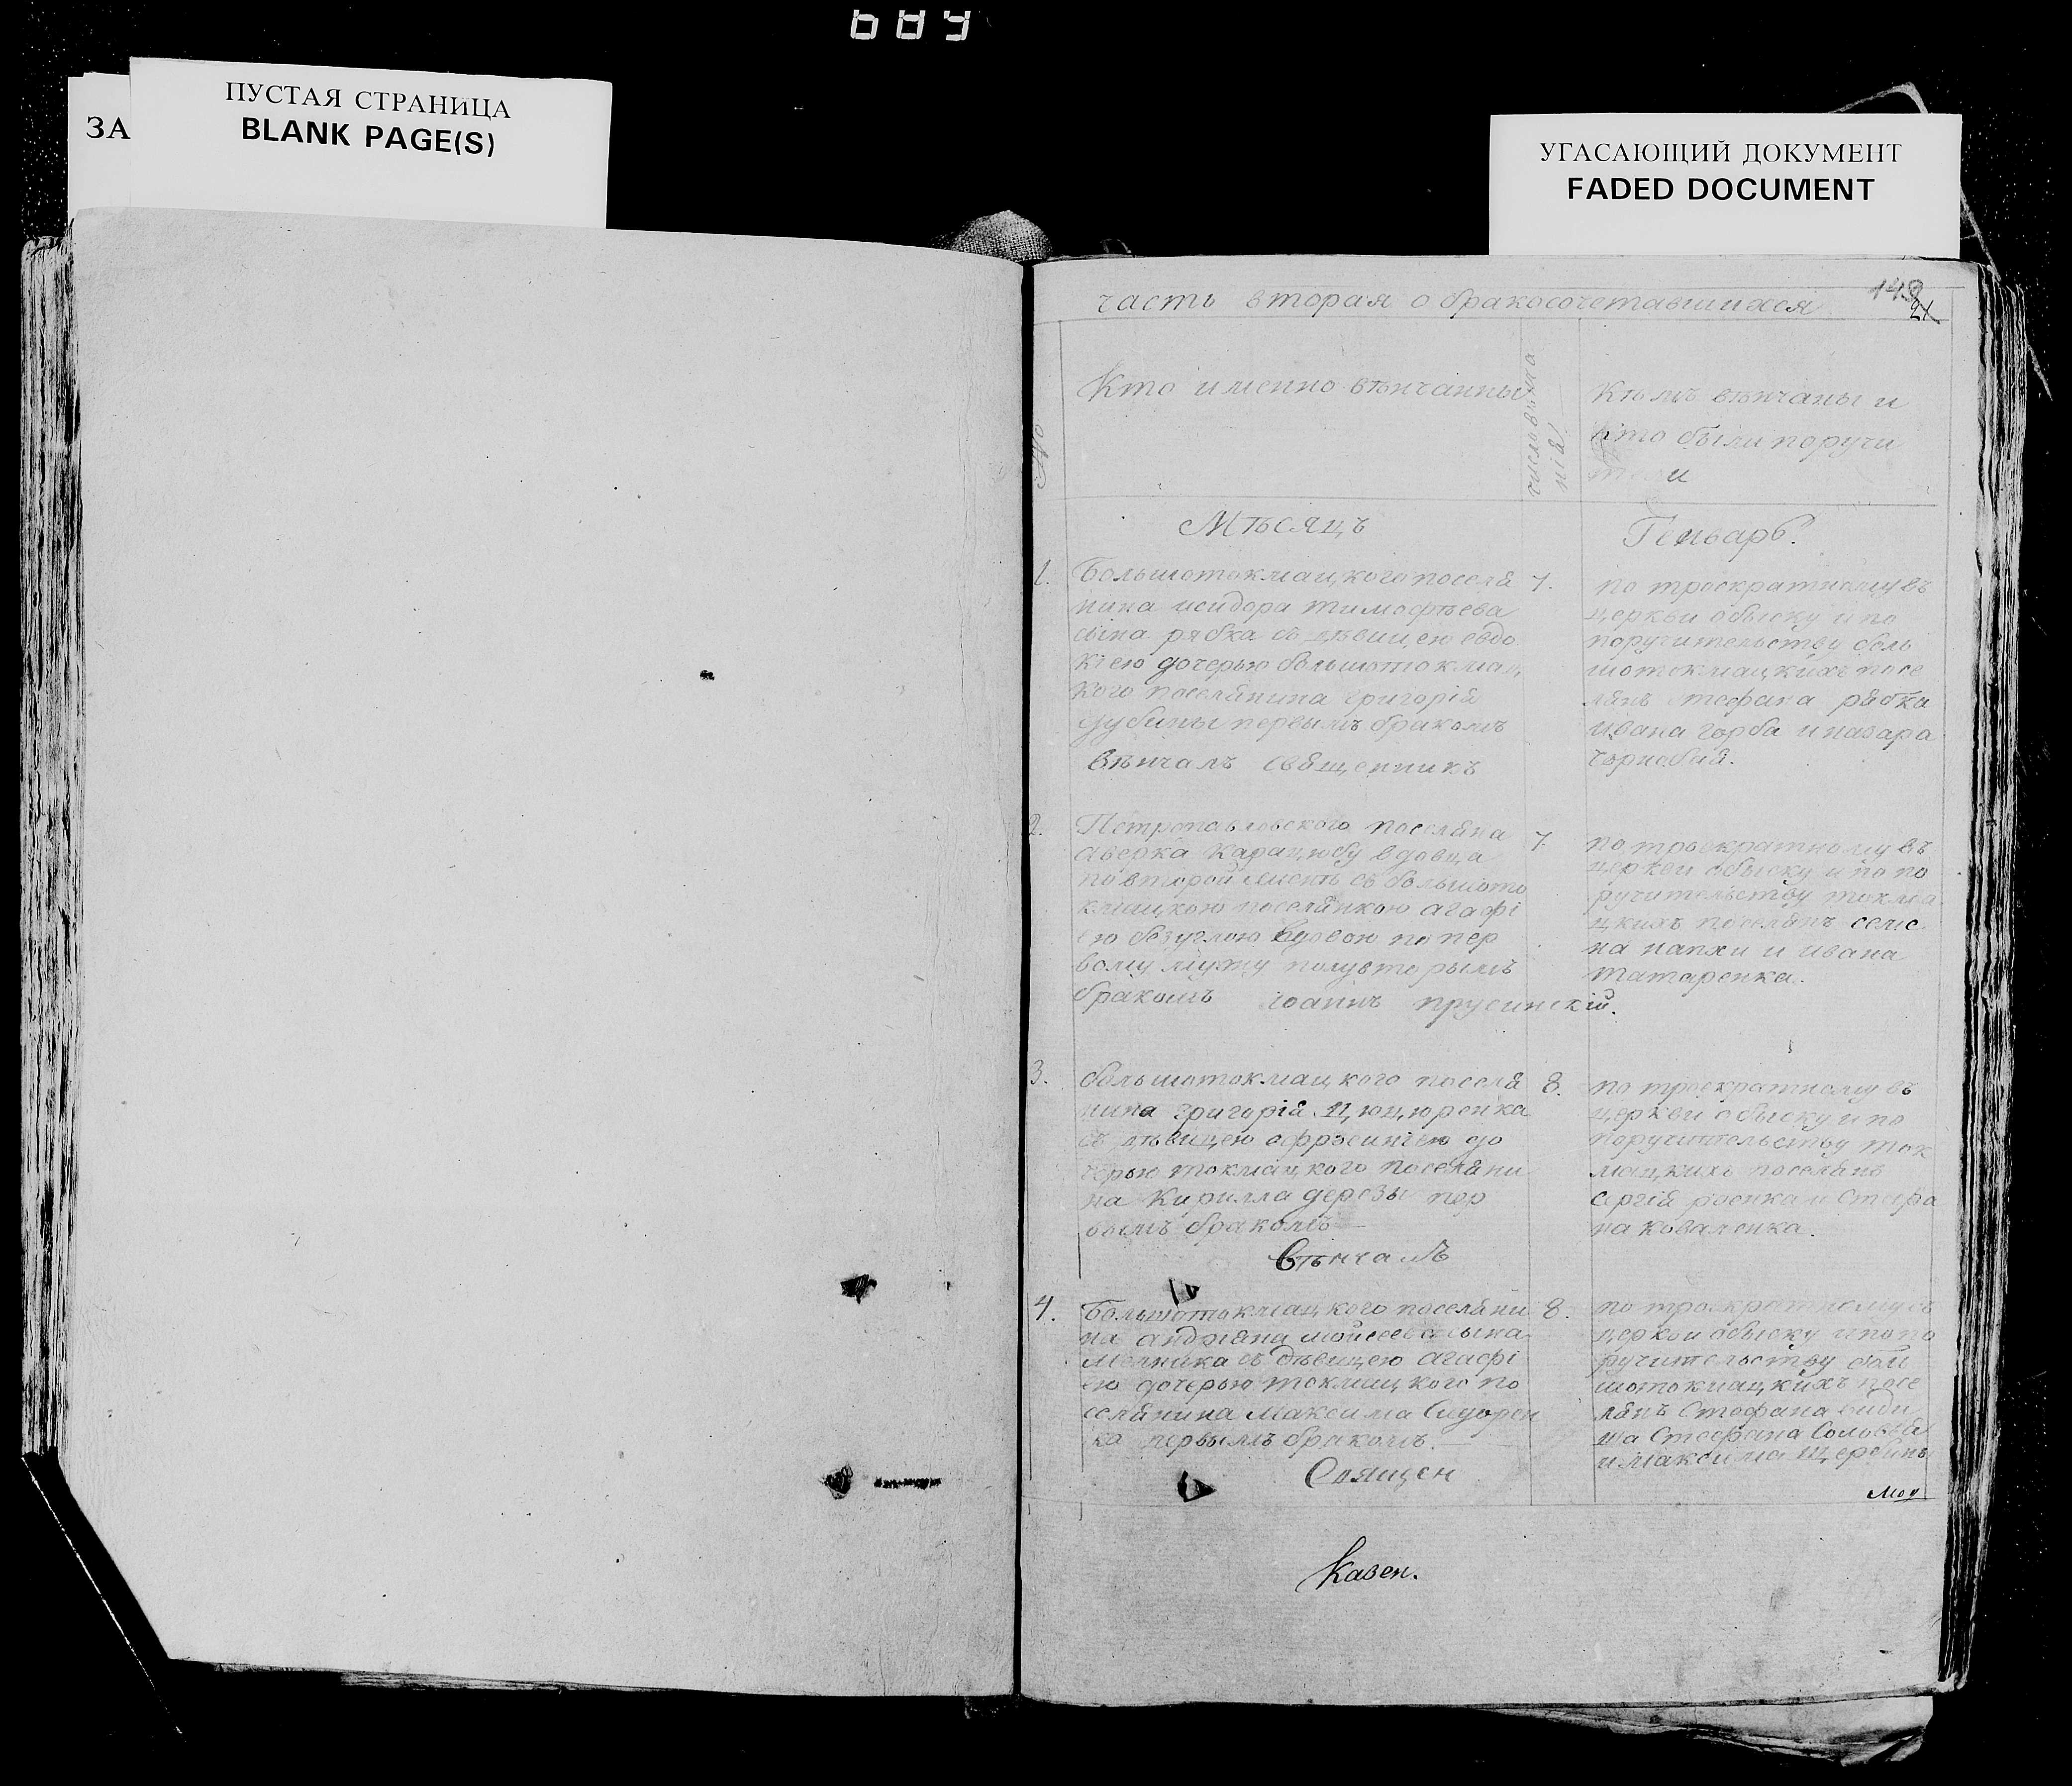 689
ПУСТАЯ СТРАНИЦА
ЗА
BLANK PAGE(S)
УГАСАЮЩИЙ ДОКУМЕНТ
FADED DOCUMENT
148
21
часть вторая о бракосочетавшихся
№
Кто именно вѣнчанны
число вѣнча
нія
Кѣмъ вѣнчаны и
кто были поручи
тели
Мѣсяцъ
Генварь.
1.
Большотокмацкого поселя
нина исидора тимофѣева
сына рябка съ дѣвицею евдо
кіею дочерью большотокмац
кого поселянина григорія
дубины первымъ бракомъ
вѣнчалъ священникъ
7.
по троекратному въ
церкви обыску и по
поручительству боль
шотокмацкихъ посе
лянъ стефана рябка
ивана горба и назара
чорнобая.
2.
Петропавловского поселяна
аверка Карацюбу вдовца
по второй женѣ съ большото
кмацкою поселянкою агафі
ею безуглою вдовою по пер
вому мужу полувторымъ
бракомъ іоаннъ прусинскій.
7.
по троекратному въ
церкви обыску и по по
ручительству токма
цкихъ поселянъ семе
на папхи и ивана
татаренка.
3.
большотокмацкого поселя
нина григорія Цюцюренка
съ дѣвицею ефросиніею до
черью токмацкого поселяни
на Кирилла дерезы пер
вымъ бракомъ
Вѣнчалъ
8.
по троекратному въ
церкви обыску и по
поручительству ток
мацкихъ поселянъ
сергія росенка и стефа
на коваленка.
4.
Большотокмацкого поселяни
на андріяна мойсеева сына
Мелника съ дѣвицею агафі
ею дочерью токмацкого по
селянина Максима Сидорен
ка первымъ бракомъ.
Священ
8.
по троекратному въ
церкви обыску и по по
ручительству боль
шотокмацкихъ посе
лянъ Стефана
Стефана Соловья
и Максима
Моу
Казен.